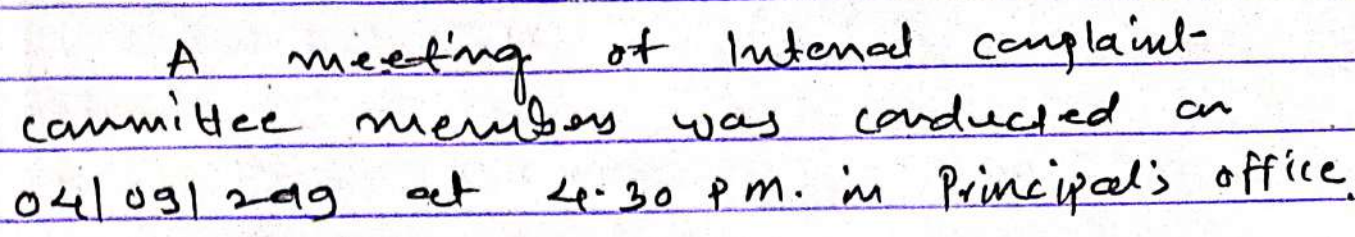 A meeting of Internal complaint
committee members was conducted on
04/09/2019 at 4.30 p.m. in Principal's office.